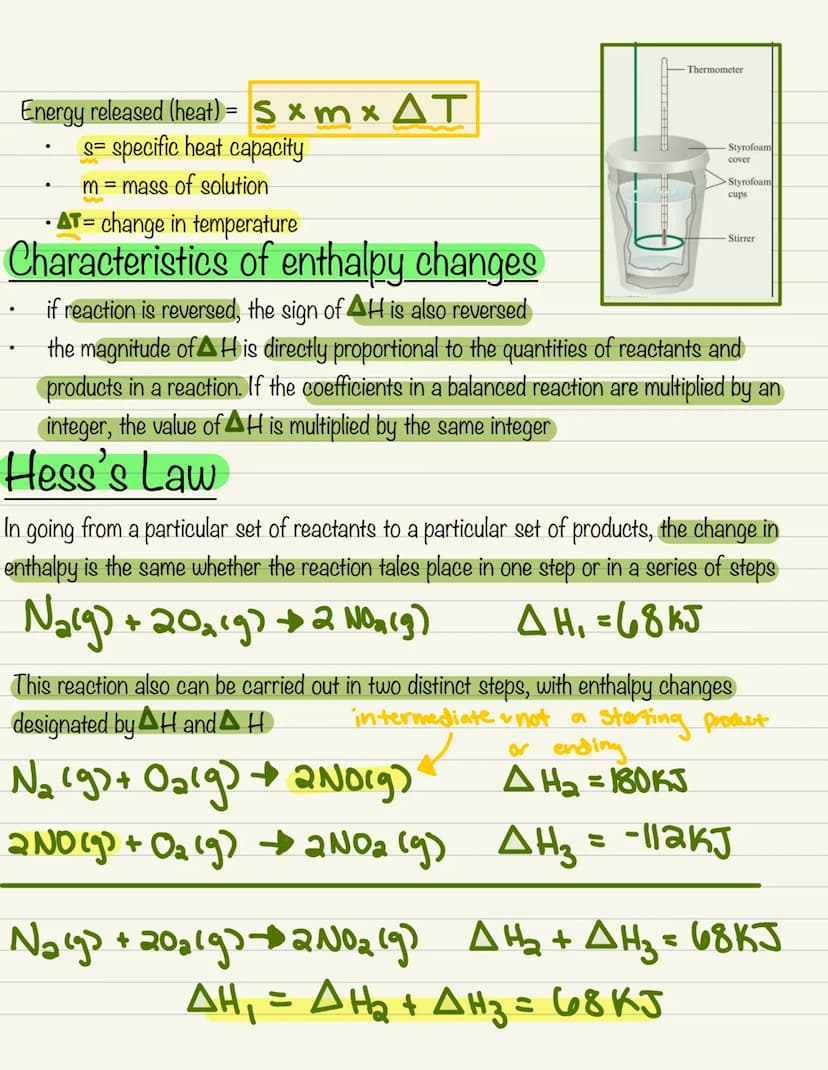 Energy released (heat) = s x m x ΔT
• s= specific heat capacity
• m = mass of solution
• ΔT= change in temperature
Thermometer
Styrofoam
cover
Styrofoam
cups
Stirrer
Characteristics of enthalpy changes
• if reaction is reversed, the sign of ΔH is also reversed
• the magnitude of ΔH is directly proportional to the quantities of reactants and
products in a reaction. If the coefficients in a balanced reaction are multiplied by an
integer, the value of ΔH is multiplied by the same integer
Hess's Law
In going from a particular set of reactants to a particular set of products, the change in
enthalpy is the same whether the reaction tales place in one step or in a series of steps
N₂(g) + 2O₂(g) → 2 NO₂(g) ΔH₁ = 68 KJ
This reaction also can be carried out in two distinct steps, with enthalpy changes
designated by ΔH and Δ H
intermediate not a starting product
or ending
N₂(g) + O₂(g) → 2NO(g) ΔH₂ = 180KJ
2NO(g) + O₂(g) → 2NO₂(g) ΔH₃ = -112KJ
N₂(g) + 2O₂(g) → 2NO₂(g) ΔH₂ + ΔH₃ = 68KJ
ΔH₁ = ΔH₂ + ΔH₃ = 68KJ